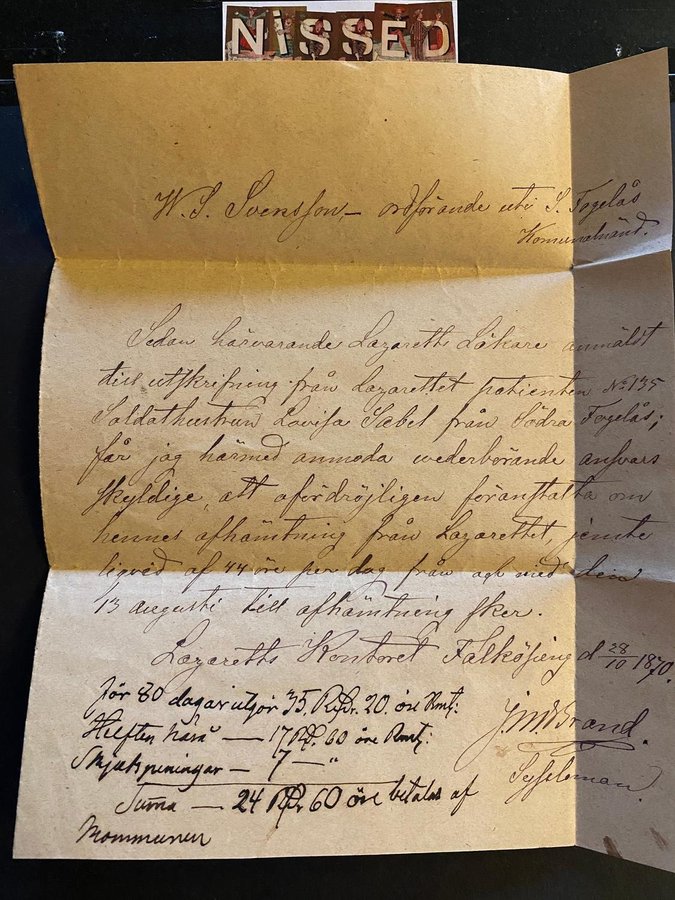 NISSED
W. S. Svensson, – ordförande uti S. Fogelås
Komunalnämd.
Sedan härvarande Lazaretts Läkare anmäldt
till utskrifning från Lazarettet patienten No 135
Soldathustrun Lovisa Sabel från Södra Fogelås;
får jag härmed anmoda wederbörande ansvars
skyldige, att ofördröjligen föranstalta om
hennes afhämtning från Lazarettet, jemte
liqvid af 44 öre per dag från och med den
13 augusti till afhämtning sker.
Lazaretts Kontoret Falköping d 28/10 1870.
för 80 dagar utgör 35. Rdr. 20. öre Rmt:
Helften härå — 17 Rdr. 60 öre Rmt:
Skjutspeningar — 7 — "
Suma — 24 Rdr 60 öre betalas af
Kommunen
Brand.
Syssloman.